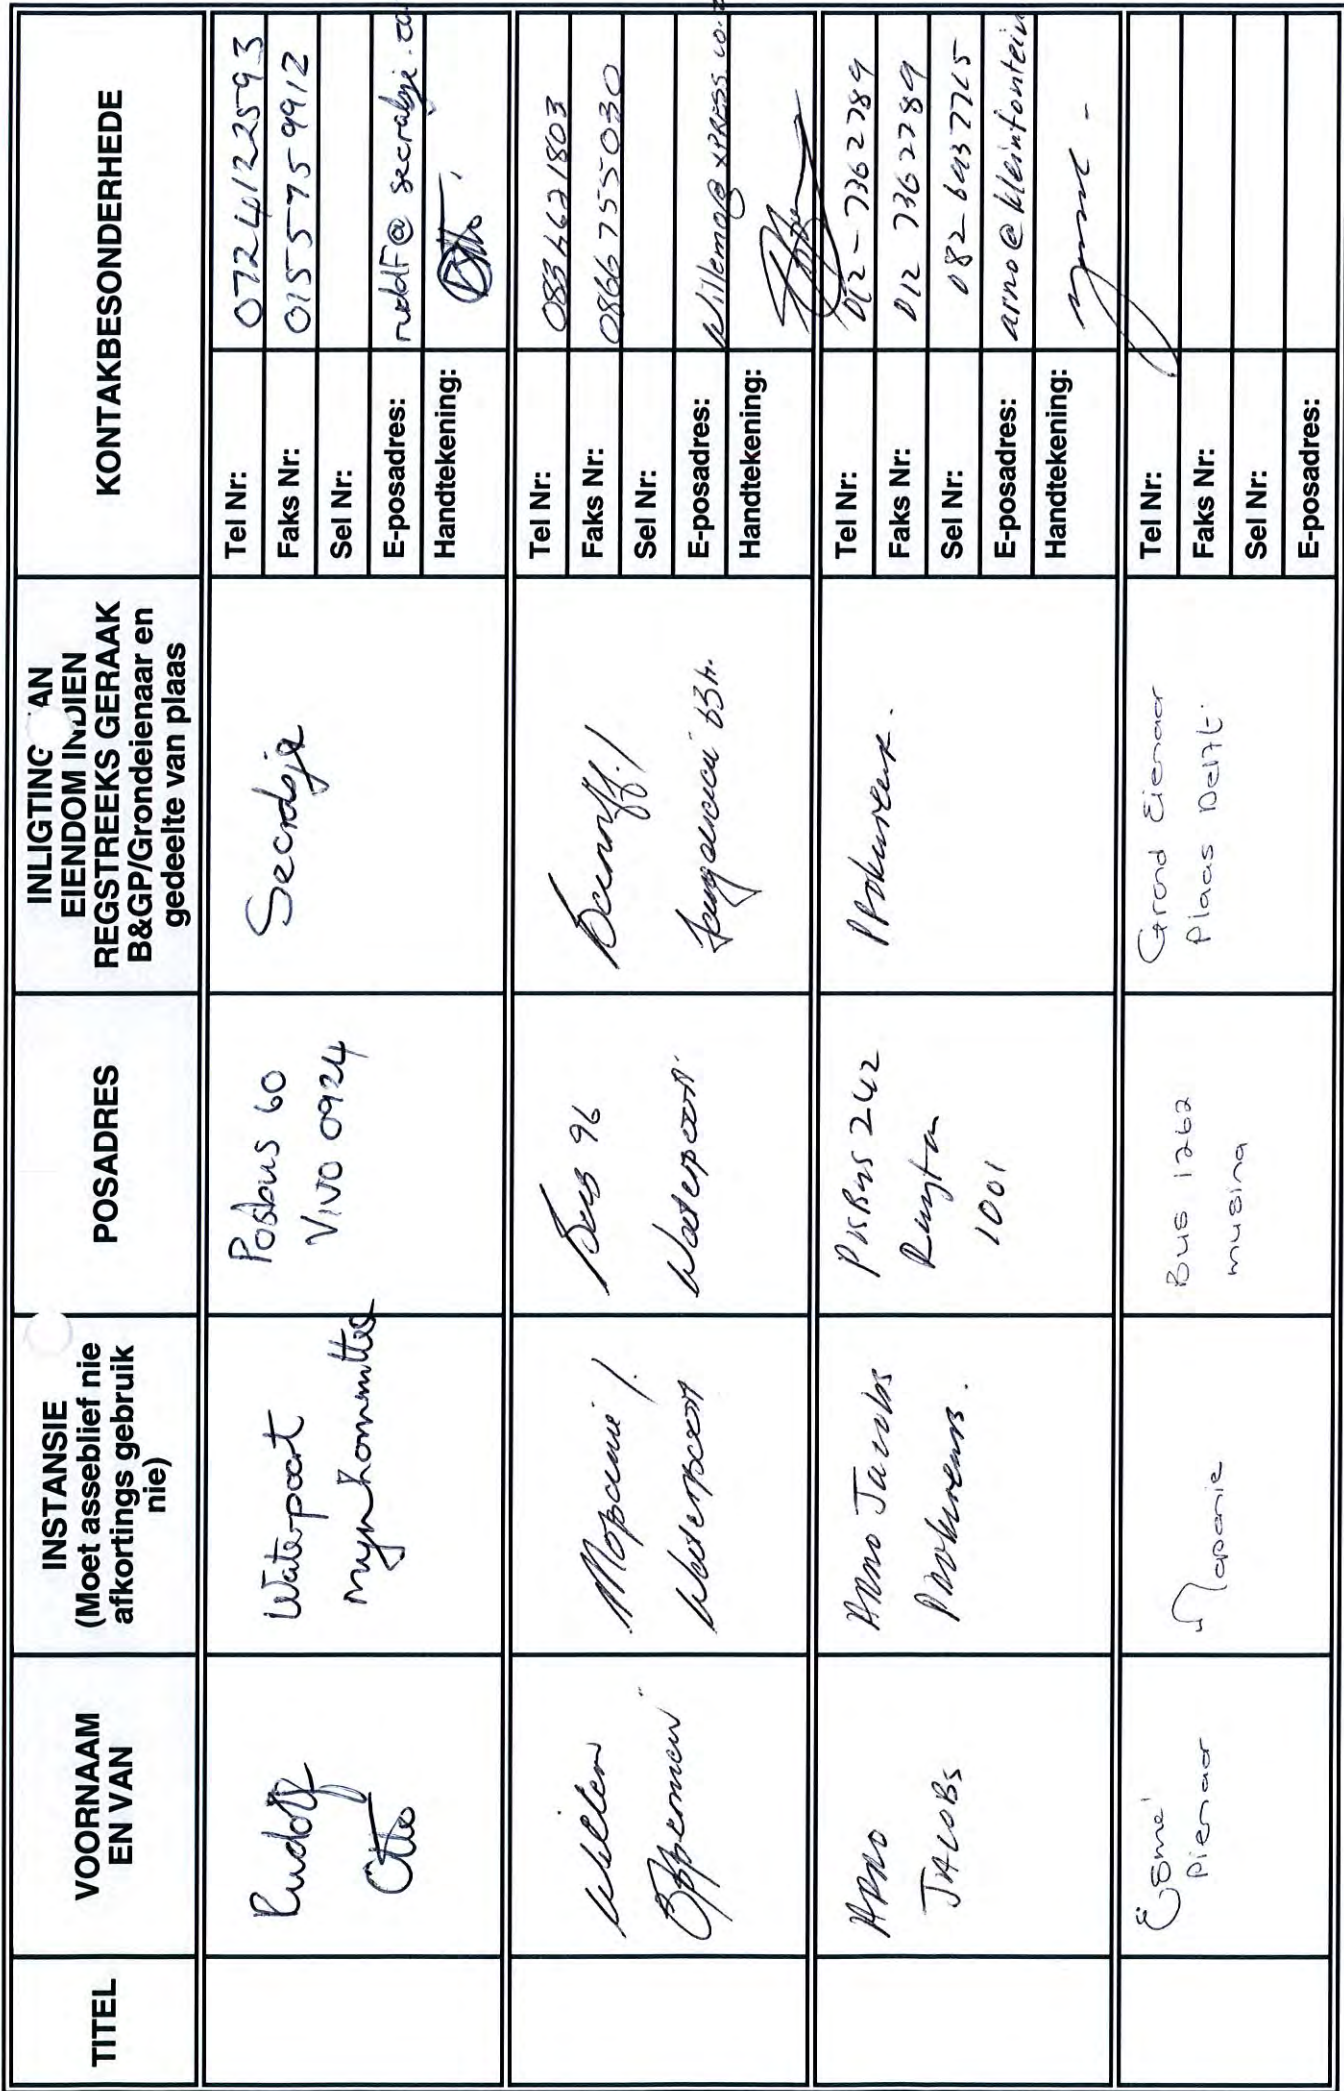 TITEL
VOORNAAM
EN VAN
INSTANSIE
(Moet asseblief nie
afkortings gebruik
nie)
POSADRES
INLIGTING AN
EIENDOM INDIEN
REGSTREEKS GERAAK
B&GP/Grondeienaar en
gedeelte van plaas
KONTAKBESONDERHEDE
Rudolf
Otto
Waterpoort
Mynkommittee
Posbus 60
Vivo 0924
Tel Nr: 0724122593
Faks Nr: 0155759912
Sel Nr:
E-posadres:
Handtekening:
Willem
Opperman
Mopanie /
Waterpoort
Bus 96
Waterpoort
Tel Nr: 0834621803
Faks Nr: 0866755030
Sel Nr:
E-posadres:
Handtekening:
ARNO
JACOBS
Arno Jacobs
Prokureurs.
Posbus 242
Rayton
1001
Prokureur.
Tel Nr: 012-7362789
Faks Nr: 012 7362789
Sel Nr: 082-6937725
E-posadres: arno@kleinfontein
Handtekening:
Pienaar
Mopanie
Bus 1262
musina
Grond Eienaar
Plaas Delft.
Tel Nr:
Faks Nr:
Sel Nr:
E-posadres: